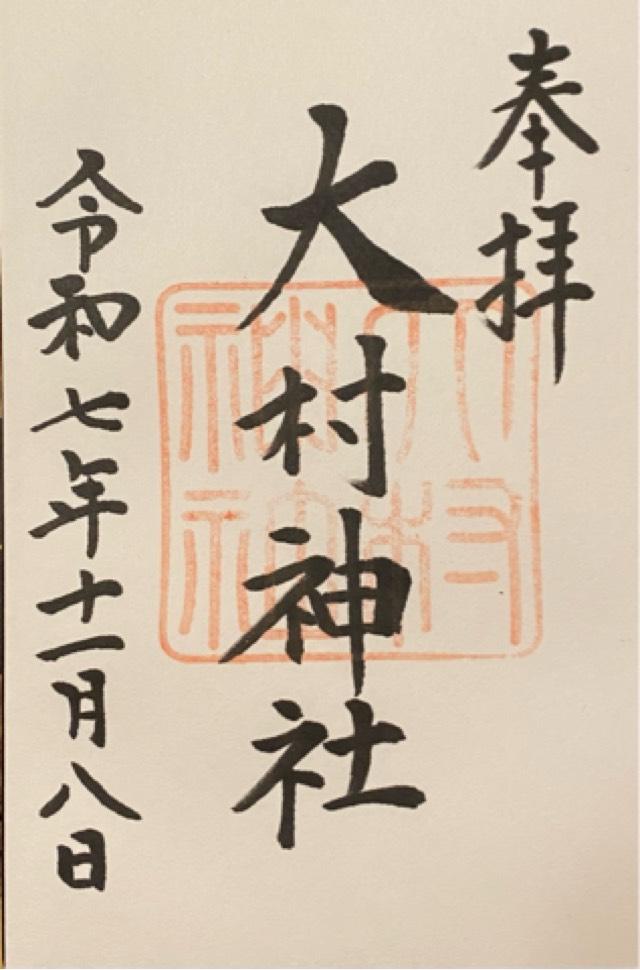 奉拝
大村神社
令和七年十一月八日
大村
神社